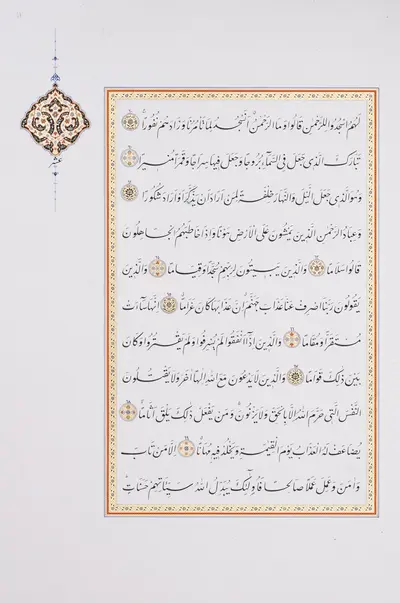 لَهُمُ اسْجُدُوا لِلرَّحْمٰنِ قَالُوا وَمَا الرَّحْمٰنُ أَنَسْجُدُ لِمَا تَأْمُرُنَا وَزَادَهُمْ نُفُورًا
تَبَارَكَ الَّذِي جَعَلَ فِي السَّمَاءِ بُرُوجًا وَجَعَلَ فِيهَا سِرَاجًا وَقَمَرًا مُنِيرًا
وَهُوَ الَّذِي جَعَلَ اللَّيْلَ وَالنَّهَارَ خِلْفَةً لِمَنْ أَرَادَ أَنْ يَذَّكَّرَ أَوْ أَرَادَ شُكُورًا
وَعِبَادُ الرَّحْمٰنِ الَّذِينَ يَمْشُونَ عَلَى الْأَرْضِ هَوْنًا وَإِذَا خَاطَبَهُمُ الْجَاهِلُونَ
قَالُوا سَلَامًا وَالَّذِينَ يَبِيتُونَ لِرَبِّهِمْ سُجَّدًا وَقِيَامًا وَالَّذِينَ
يَقُولُونَ رَبَّنَا اصْرِفْ عَنَّا عَذَابَ جَهَنَّمَ إِنَّ عَذَابَهَا كَانَ غَرَامًا إِنَّهَا سَاءَتْ
مُسْتَقَرًّا وَمُقَامًا وَالَّذِينَ إِذَا أَنْفَقُوا لَمْ يُسْرِفُوا وَلَمْ يَقْتُرُوا وَكَانَ
بَيْنَ ذٰلِكَ قَوَامًا وَالَّذِينَ لَا يَدْعُونَ مَعَ اللّٰهِ إِلٰهًا آخَرَ وَلَا يَقْتُلُونَ
النَّفْسَ الَّتِي حَرَّمَ اللّٰهُ إِلَّا بِالْحَقِّ وَلَا يَزْنُونَ وَمَنْ يَفْعَلْ ذٰلِكَ يَلْقَ أَثَامًا
يُضَاعَفْ لَهُ الْعَذَابُ يَوْمَ الْقِيٰمَةِ وَيَخْلُدْ فِيهِ مُهَانًا إِلَّا مَنْ تَابَ
وَآمَنَ وَعَمِلَ عَمَلًا صَالِحًا فَأُولٰئِكَ يُبَدِّلُ اللّٰهُ سَيِّئَاتِهِمْ حَسَنَاتٍ